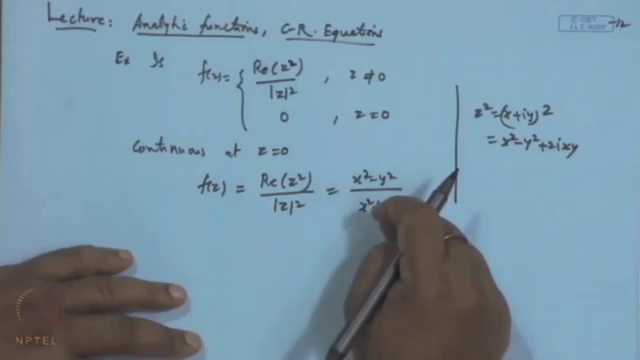 Lecture: Analytic functions, C-R. Equations
Ex Is f(z) = { Re(z²)/|z|² , z ≠ 0
0 , z = 0
Continuous at z=0
f(z) = Re(z²)/|z|² = x²-y²/x²
z² = (x+iy)²
= x²-y²+2ixy
NPTEL